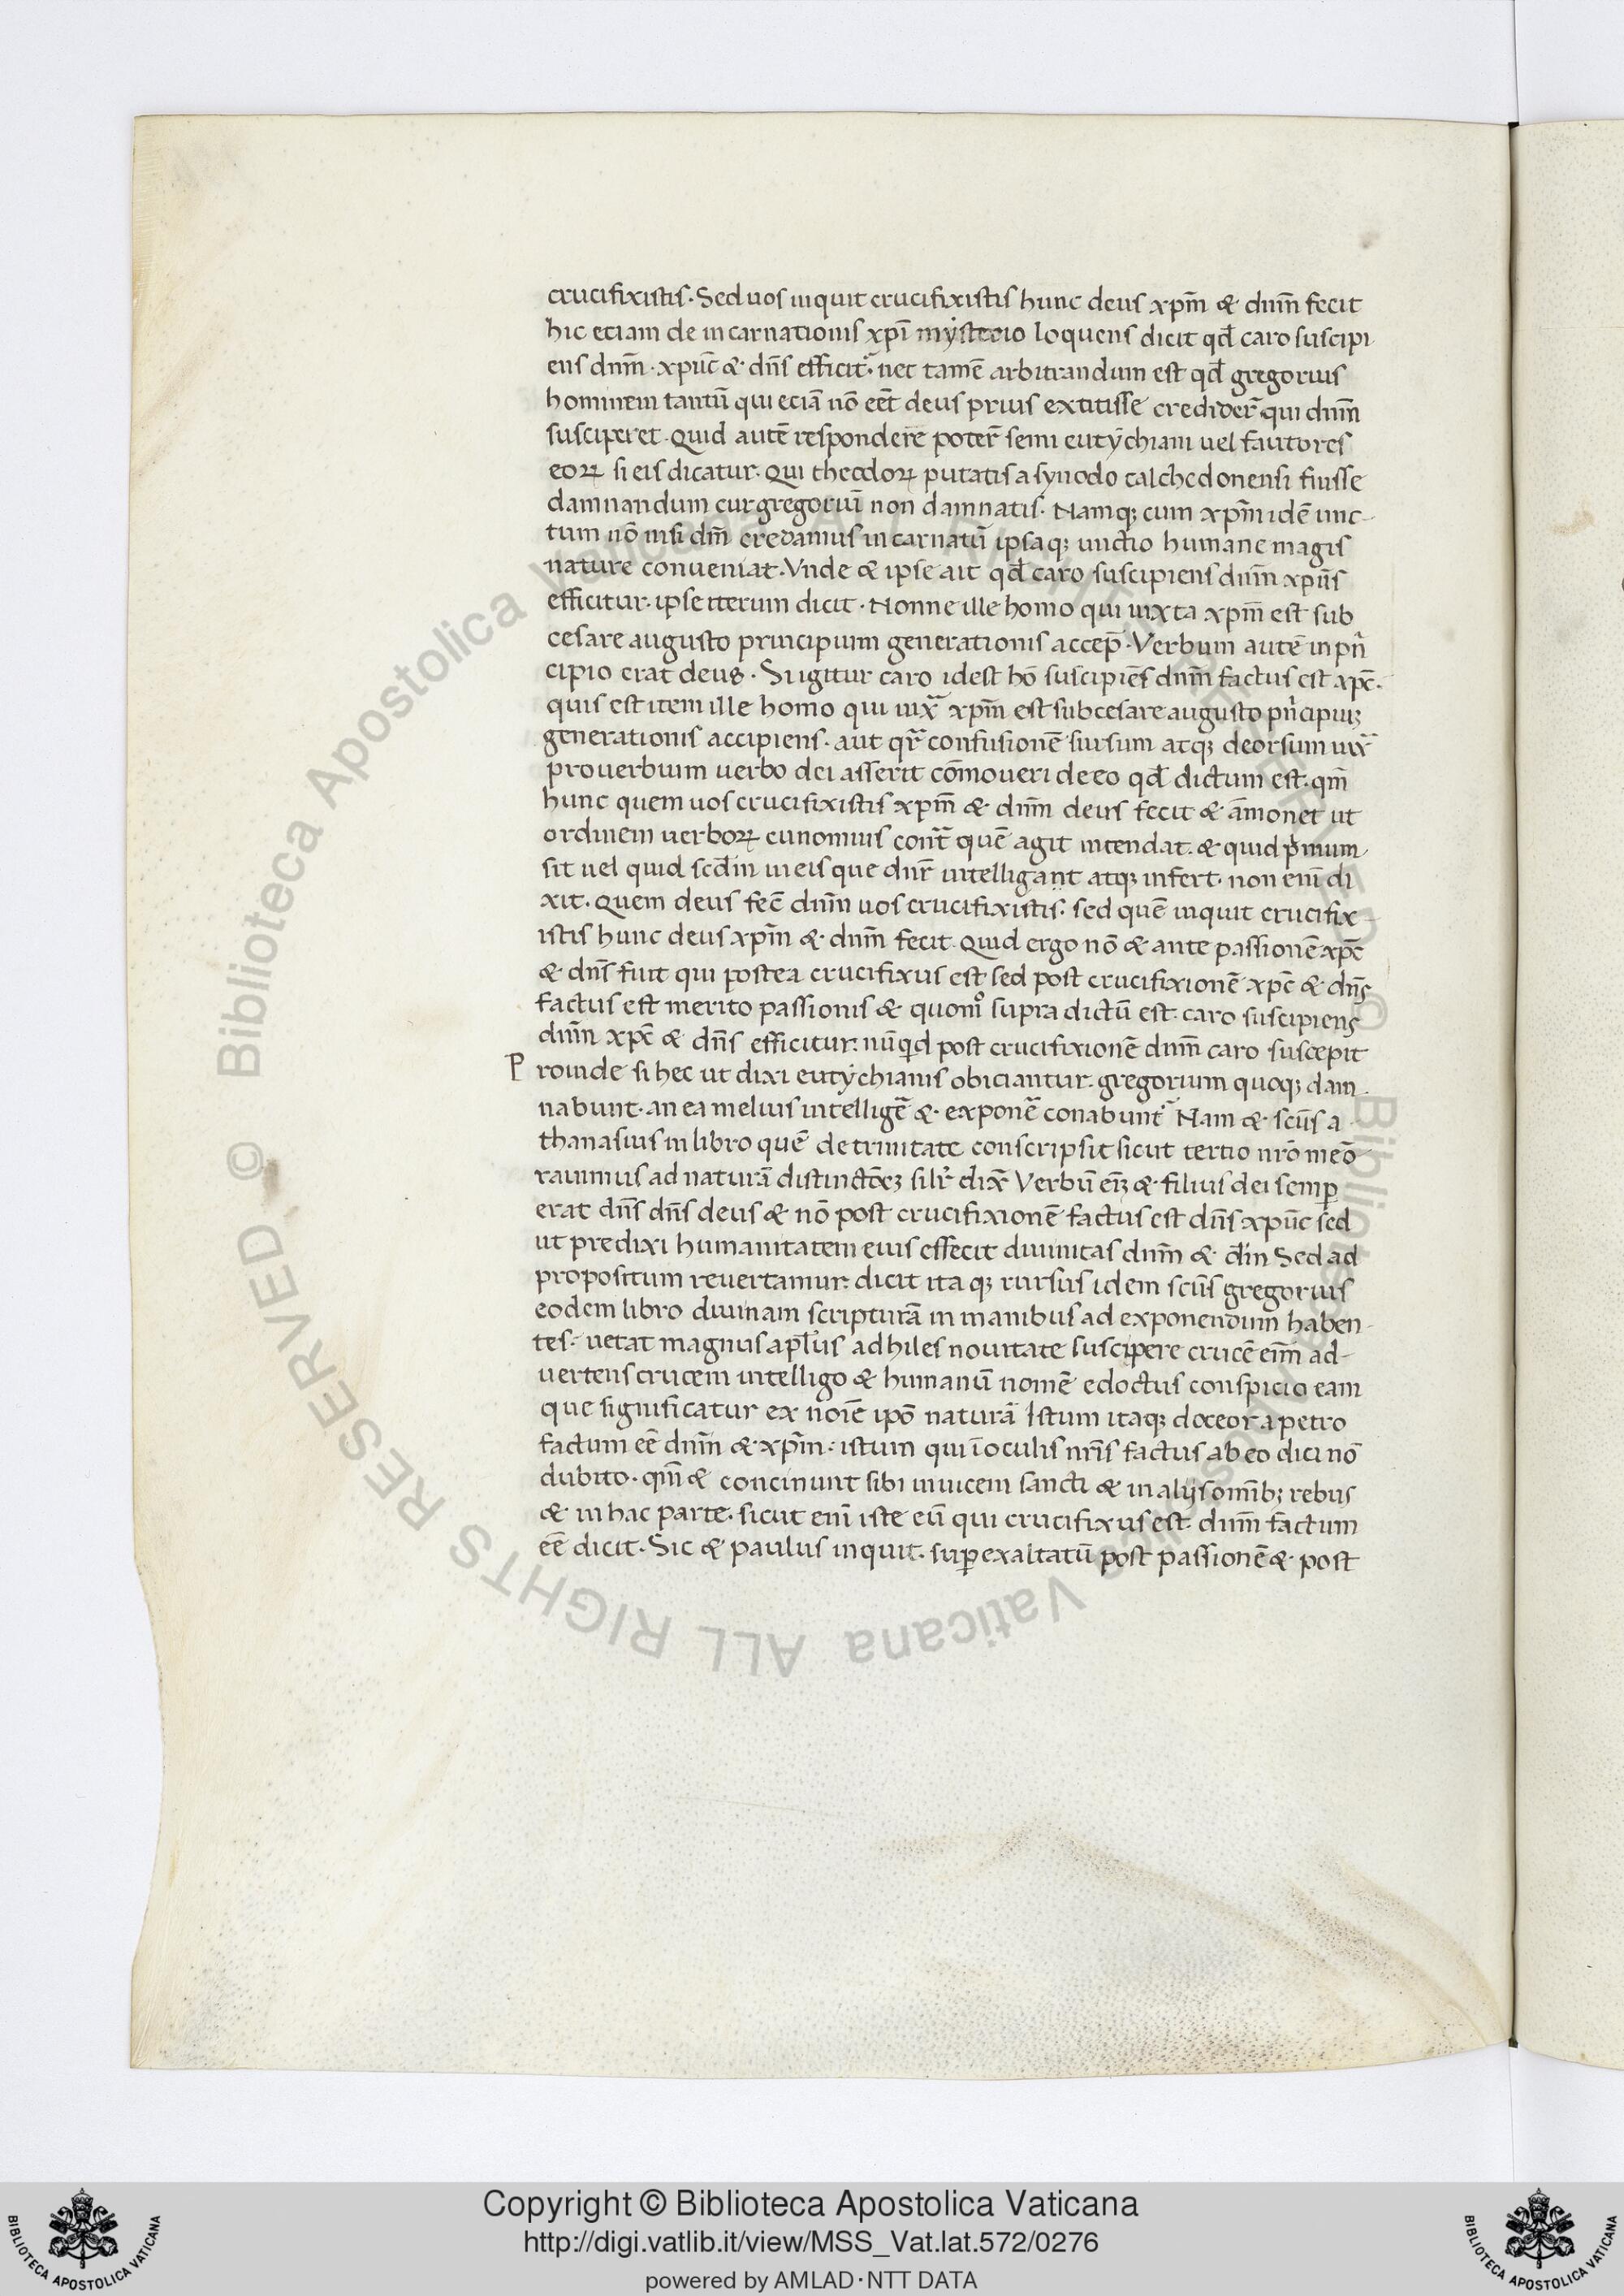 crucifixistis. Sed uos inquit crucifixistis hunc deus xp̄m & dūm fecit
hic eciam de incarnationis xp̄i mysterio loquens dicit qd̄ caro suscipi
ens dn̄m. xpūc & dn̄s efficit᷒. nec tamē arbitrandum est qd̄ gregorius
hominem tantū qui eciā nō eēt deus prius extitisse credider̄ qui dn̄m
susciperet. Quid autē respondere poter̄ semi eutychiani uel fautores
eoꝝ si eis dicatur. Qui theodoꝝ putatis a synodo calchedonensi fuisse
damnandum cur gregoriū non damnatis. Namqꝫ cum xp̄m idē unc-
tum nō nisi dm̄ credamus incarnatū ipsaqꝫ unctio humane magis
nature conueniat. Vnde & ipse ait qd̄ caro suscipiens dn̄m xpūs
efficitur. ipse iterum dicit. Nonne ille homo qui iuxta xp̄m est sub
cesare augusto principium generationis accep̄. Verbum autē in pn̄
cipio erat deus. Si igitur caro idest hō suscipiēs dn̄m factus est xp̄c.
quis est item ille homo qui iux̄ xp̄m est sub cesare augusto pn̄cipiuꝫ
generationis accipiens. aut qr̄ confusionē sursum atqꝫ deorsum iux̄
prouerbium uerbo dei asserit cōmoueri de eo qd̄ dictum est. qm̄
hunc quem uos crucifixistis xp̄m & dn̄m deus fecit & āmonet ut
ordinem uerboꝝ eunomius cont̄ quē agit intendat. & quid pⁱmum
sit uel quid scd̄m in eis que dn̄r intelligant atqꝫ infert. non enī di
xit. Quem deus fec̄ dn̄m uos crucifixistis. sed quē inquit crucifix-
istis hunc deus xp̄m & dn̄m fecit. Quid ergo nō & ante passionē xp̄c
& dn̄s fuit qui postea crucifixus est sed post crucifixionē xp̄c & dn̄s
factus est merito passionis & quomͦ supra dictū est. caro suscipiens
dn̄m xp̄c & dn̄s efficitur. nūqid post crucifixionē dn̄m caro suscepit
P roinde si hec ut dixi eutychianis obiciantur. gregorium quoqꝫ dam-
nabunt. an ea melius intelligē & exponē conabunt᷒ Nam & scūs a
thanasius in libro quē de trinitate conscripsit sicut tertio nrō meō
rauimus ad naturā distinctōeꝫ silr̄ dix̄ Verbū eīꝫ & filius dei semꝑ
erat dn̄s dn̄s deus & nō post crucifixionē factus est dn̄s xpūc sed
ut predixi humanitatem eius effecit diuinitas dn̄m & dm̄ Sed ad
propositum reuertamur. dicit itaqꝫ rursus idem scūs gregorius
eodem libro diuinam scripturā in manibus ad exponendum haben-
tes. uetat magnus apl̄us ad hiles nouitate suscipere crucē eīm ad-
uertens crucem intelligo & humanū nomē edoctus conspicio eam
que significatur ex noīe ipō naturā Istum itaqꝫ doceor a petro
factum eē dn̄m & xp̄m. istum qui ī oculis nrīs factus ab eo dici nō
dubito. qm̄ & concinunt sibi inuicem sancti & in alijs omībꝫ rebus
& in hac parte. sicut enī iste eū qui crucifixus est. dn̄m factum
eē dicit. Sic & paulus inquit. suꝑexaltatū post passionē & post
Copyright © Biblioteca Apostolica Vaticana
http://digi.vatlib.it/view/MSS_Vat.lat.572/0276
powered by AMLAD·NTT DATA